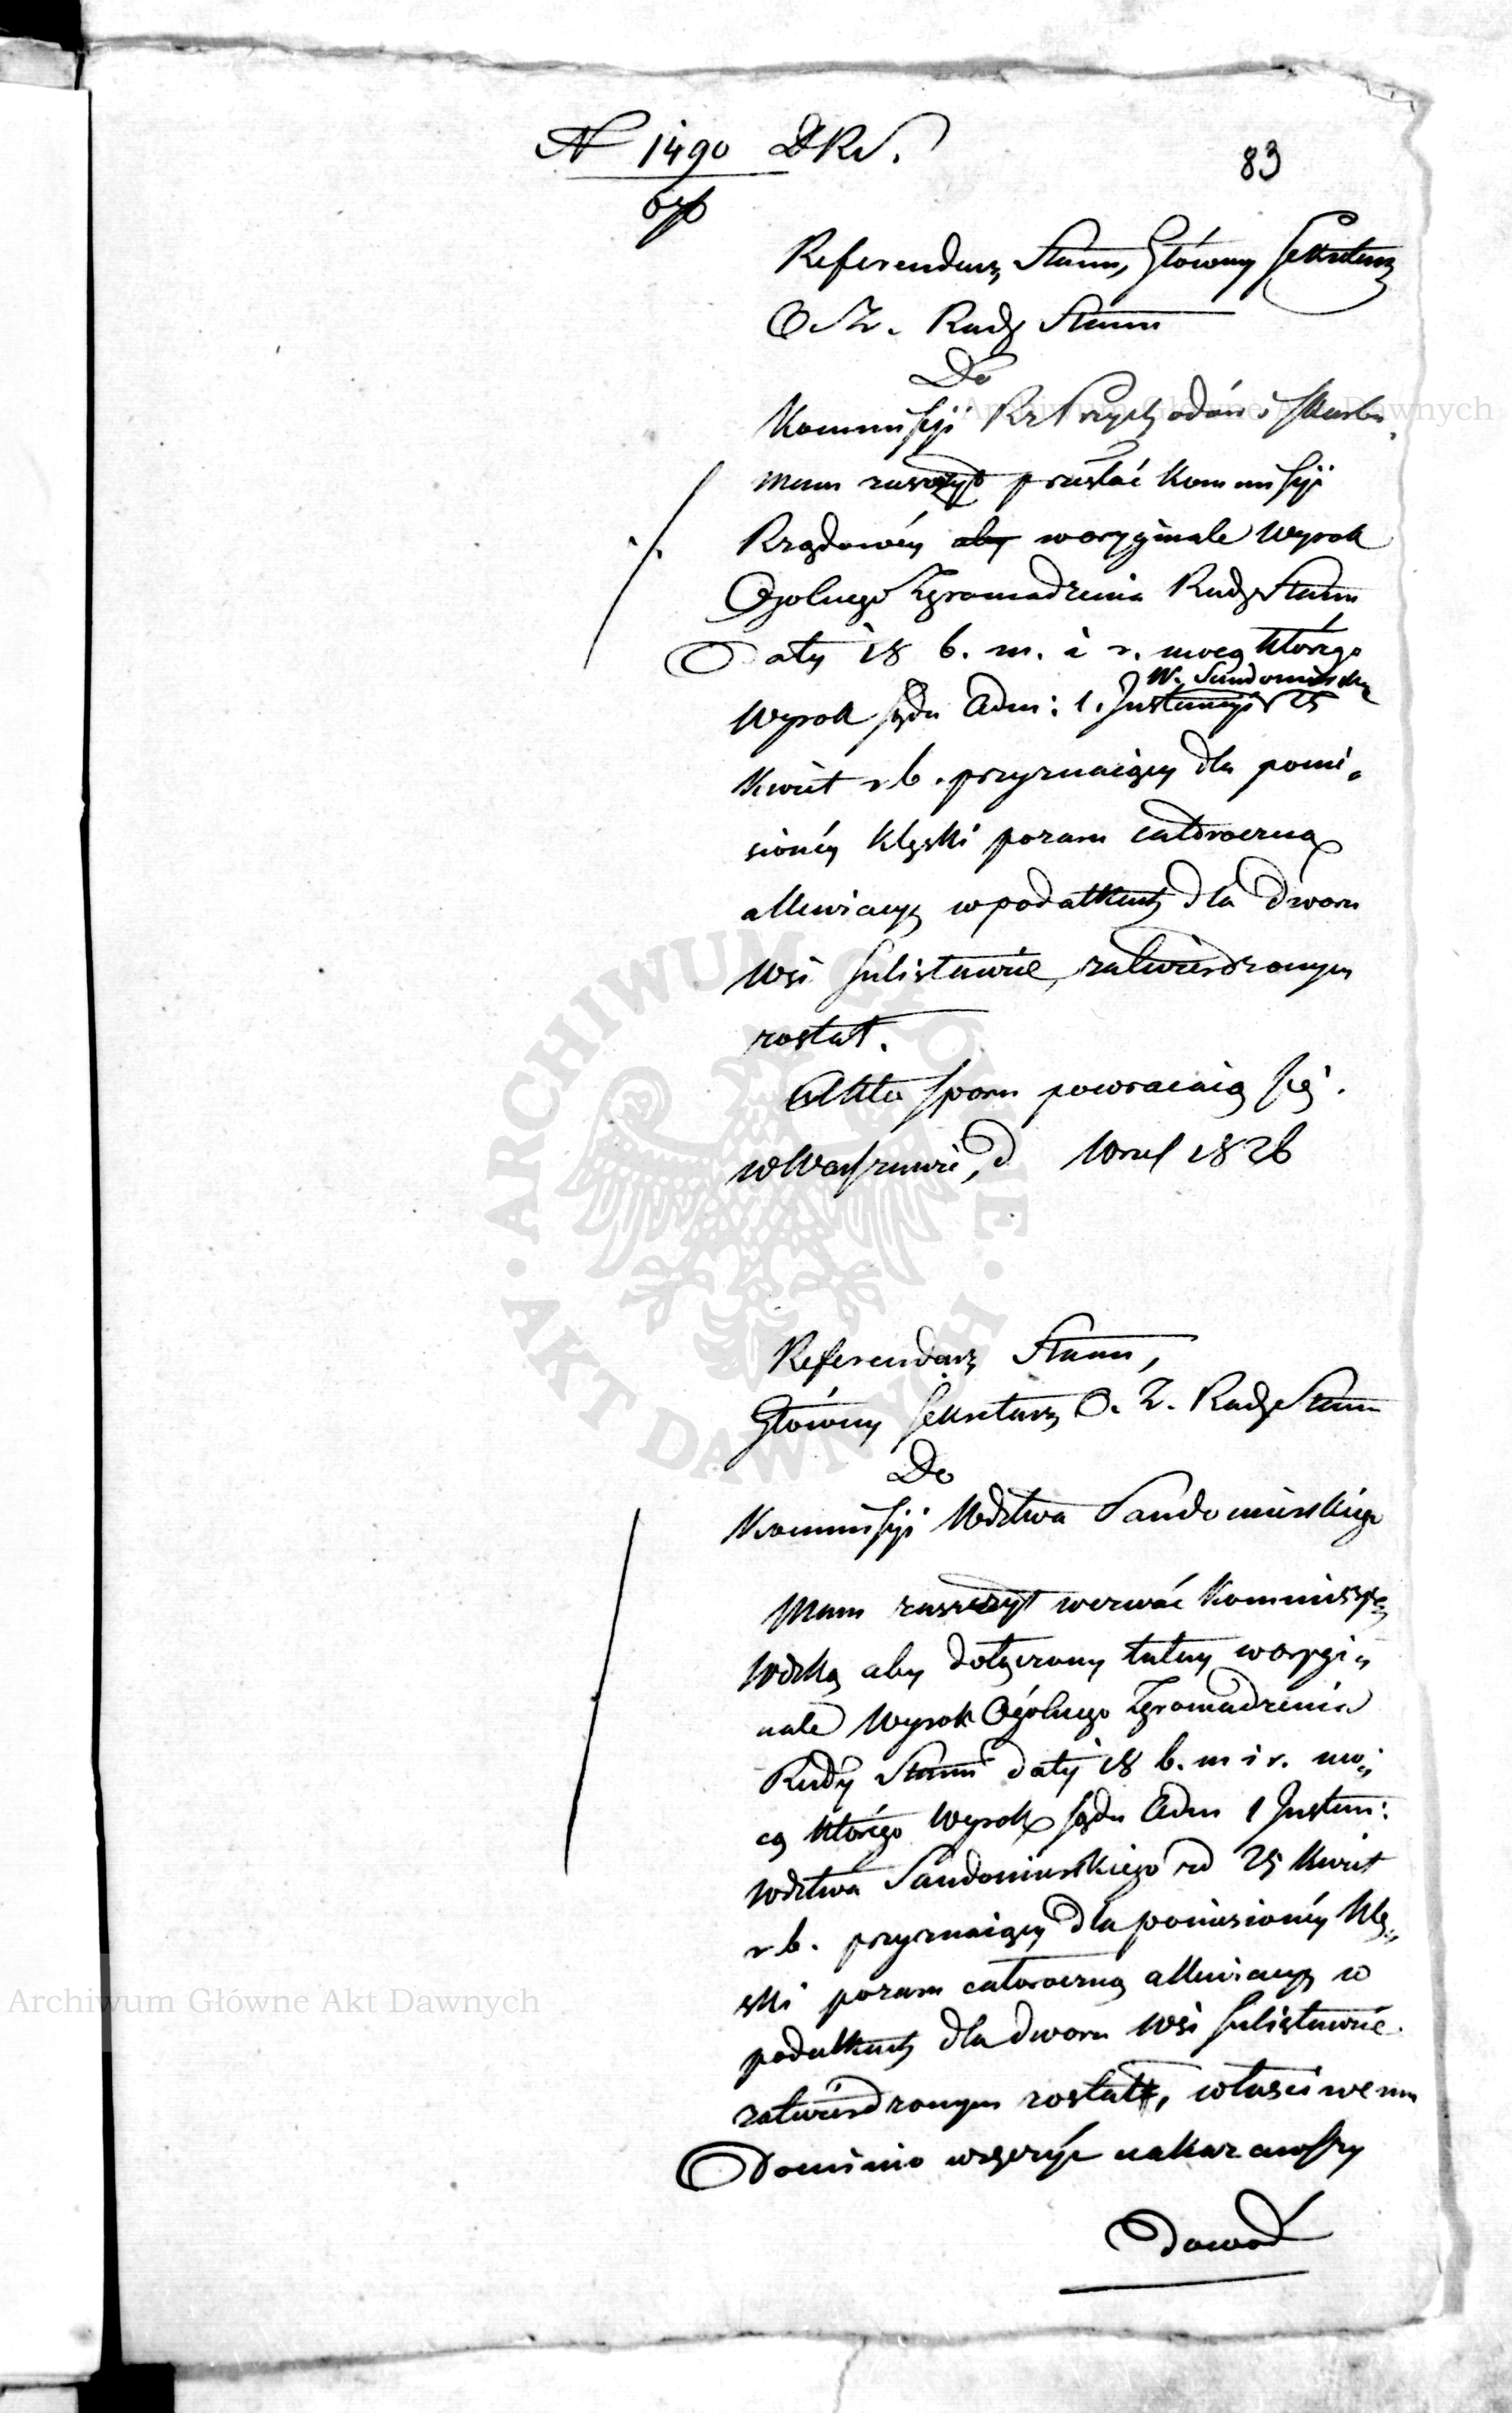 N 1490 DRS.
83
Referendarz Stanu, Główny Sekretarz
O. Z. Rady Stanu
Do
Kommissyi Rz Przychodów i Skarbu
Mam zaszczyt przesłać Kommissyi
Rządowéy aby w oryginale Wyrok
Ogolnego Zgromadzenia Rady Stanu
Daty 18 b. m. i r. mocą którego
W. Sandomirskiego
Wyrok Sądu Adm: 1. Instancyi z 25
Kwiet r b. przyznaiący dla ponie„
sionéy klęski pożaru całoroczną
allewiacyą w podatkach dla dworu
Wsi Sulisławie, zatwierdzonym
został.
Akta sporu powracaią się.
w Warszawie, d Wrześ 1826
Referendarz Stanu,
Główny Sekretarz O. Z. Rady Stanu
Do
Kommissyi Wdztwa Sandomirskiego
Mam zaszczyt wezwać Kommissyą
Wdzką aby dołączony tutay w orygi„
nale Wyrok Ogólnego Zgromadzenia
Rady Stanu daty 18 b. m i r. mo„
cą którego Wyrok Sądu Adm 1 Instan:
Wdztwa Sandomirskiego z d 25 Kwiet
r b. przyznaiący dla poniesionéy klę„
ski pożaru całoroczną allewiacyą w
podatkach dla dworu Wsi Sulisławie
zatwierdzonym został, właściwemu
Dominio wręczyć nakazawszy
Dowód
ARCHIWUM GŁÓWNE AKT DAWNYCH
Archiwum Główne Akt Dawnych
Archiwum Główne Akt Dawnych